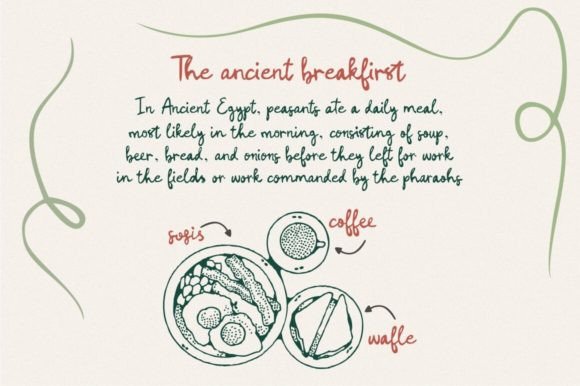 The ancient breakfirst
In Ancient Egypt, peasants ate a daily meal,
most likely in the morning, consisting of soup,
beer, bread, and onions before they left for work
in the fields or work commanded by the pharaohs
coffee
sosis
wafle